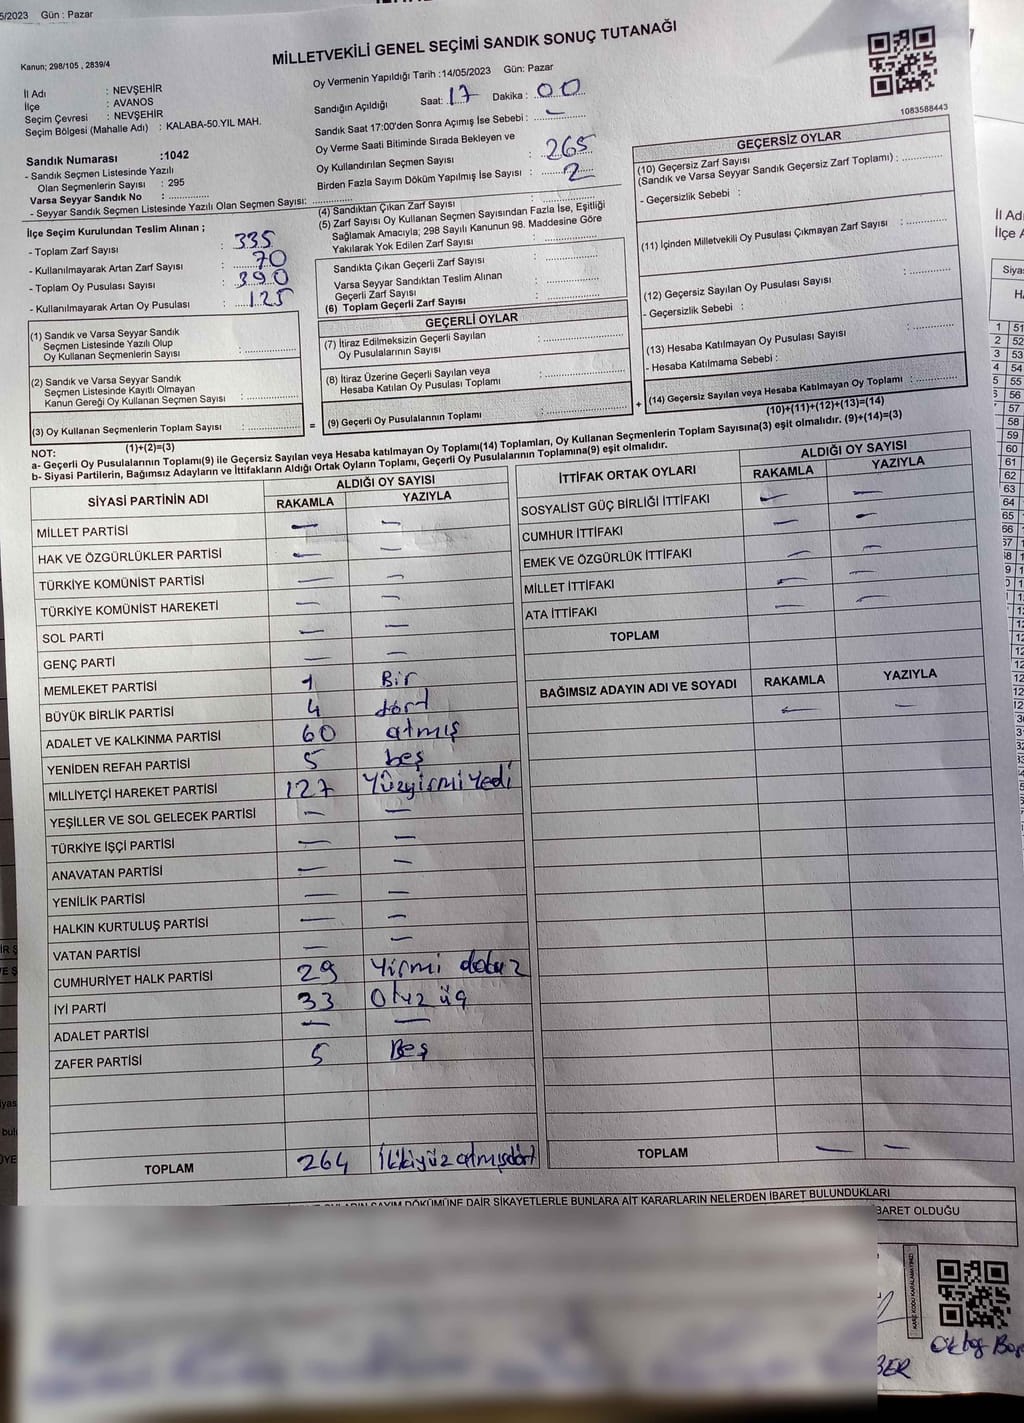 5/2023 Gün : Pazar
MİLLETVEKİLİ GENEL SEÇİMİ SANDIK SONUÇ TUTANAĞI
Kanun; 298/105 , 2839/4
İl Adı : NEVŞEHİR
İlçe : AVANOS
Seçim Çevresi : NEVŞEHİR
Seçim Bölgesi (Mahalle Adı) : KALABA-50.YIL MAH.
Sandık Numarası :1042
- Sandık Seçmen Listesinde Yazılı
Olan Seçmenlerin Sayısı : 295
Varsa Seyyar Sandık No : ..............
- Seyyar Sandık Seçmen Listesinde Yazılı Olan Seçmen Sayısı: ..............
Oy Vermenin Yapıldığı Tarih :14/05/2023 Gün: Pazar
Sandığın Açıldığı Saat: 17 Dakika : 00
Sandık Saat 17:00'den Sonra Açımış İse Sebebi : —
Oy Verme Saati Bitiminde Sırada Bekleyen ve
Oy Kullandırılan Seçmen Sayısı : 265
Birden Fazla Sayım Döküm Yapılmış İse Sayısı : 2
1083588443
İlçe Seçim Kurulundan Teslim Alınan ;
- Toplam Zarf Sayısı : 335
- Kullanılmayarak Artan Zarf Sayısı : 70
- Toplam Oy Pusulası Sayısı : 390
- Kullanılmayarak Artan Oy Pusulası : 125
(1) Sandık ve Varsa Seyyar Sandık
Seçmen Listesinde Yazılı Olup
Oy Kullanan Seçmenlerin Sayısı : ..............
(2) Sandık ve Varsa Seyyar Sandık
Seçmen Listesinde Kayıtlı Olmayan
Kanun Gereği Oy Kullanan Seçmen Sayısı : ..............
(3) Oy Kullanan Seçmenlerin Toplam Sayısı : ..............
(1)+(2)=(3)
(4) Sandıktan Çıkan Zarf Sayısı : ..............
(5) Zarf Sayısı Oy Kullanan Seçmen Sayısından Fazla İse, Eşitliği
Sağlamak Amacıyla; 298 Sayılı Kanunun 98. Maddesine Göre
Yakılarak Yok Edilen Zarf Sayısı : ..............
Sandıkta Çıkan Geçerli Zarf Sayısı : ..............
Varsa Seyyar Sandıktan Teslim Alınan
Geçerli Zarf Sayısı : ..............
(6) Toplam Geçerli Zarf Sayısı : ..............
GEÇERLİ OYLAR
(7) İtiraz Edilmeksizin Geçerli Sayılan
Oy Pusulalarının Sayısı : ..............
(8) İtiraz Üzerine Geçerli Sayılan veya
Hesaba Katılan Oy Pusulası Toplamı : ..............
= (9) Geçerli Oy Pusulalarının Toplamı : .............. +
GEÇERSİZ OYLAR
(10) Geçersiz Zarf Sayısı
(Sandık ve Varsa Seyyar Sandık Geçersiz Zarf Toplamı) : ..............
- Geçersizlik Sebebi :
(11) İçinden Milletvekili Oy Pusulası Çıkmayan Zarf Sayısı : ..............
(12) Geçersiz Sayılan Oy Pusulası Sayısı : ..............
- Geçersizlik Sebebi :
(13) Hesaba Katılmayan Oy Pusulası Sayısı : ..............
- Hesaba Katılmama Sebebi :
(14) Geçersiz Sayılan veya Hesaba Katılmayan Oy Toplamı : ..............
(10)+(11)+(12)+(13)=(14)
NOT:
a- Geçerli Oy Pusulalarının Toplamı(9) ile Geçersiz Sayılan veya Hesaba katılmayan Oy Toplamı(14) Toplamları, Oy Kullanan Seçmenlerin Toplam Sayısına(3) eşit olmalıdır. (9)+(14)=(3)
b- Siyasi Partilerin, Bağımsız Adayların ve İttifakların Aldığı Ortak Oyların Toplamı, Geçerli Oy Pusulalarının Toplamına(9) eşit olmalıdır.
SİYASİ PARTİNİN ADI ALDIĞI OY SAYISI
RAKAMLA YAZIYLA
MİLLET PARTİSİ — —
HAK VE ÖZGÜRLÜKLER PARTİSİ — —
TÜRKİYE KOMÜNİST PARTİSİ — —
TÜRKİYE KOMÜNİST HAREKETİ — —
SOL PARTİ — —
GENÇ PARTİ — —
MEMLEKET PARTİSİ 1 Bir
BÜYÜK BİRLİK PARTİSİ 4 dört
ADALET VE KALKINMA PARTİSİ 60 atmış
YENİDEN REFAH PARTİSİ 5 beş
MİLLİYETÇİ HAREKET PARTİSİ 127 Yüzyirmi Yedi
YEŞİLLER VE SOL GELECEK PARTİSİ — —
TÜRKİYE İŞÇİ PARTİSİ — —
ANAVATAN PARTİSİ — —
YENİLİK PARTİSİ — —
HALKIN KURTULUŞ PARTİSİ — —
VATAN PARTİSİ — —
CUMHURİYET HALK PARTİSİ 29 Yirmi dokuz
İYİ PARTİ 33 Otuz üç
ADALET PARTİSİ — —
ZAFER PARTİSİ 5 Beş
TOPLAM 264 İkiyüz atmışdört
İTTİFAK ORTAK OYLARI ALDIĞI OY SAYISI
RAKAMLA YAZIYLA
SOSYALİST GÜÇ BİRLİĞİ İTTİFAKI — —
CUMHUR İTTİFAKI — —
EMEK VE ÖZGÜRLÜK İTTİFAKI — —
MİLLET İTTİFAKI — —
ATA İTTİFAKI — —
TOPLAM
BAĞIMSIZ ADAYIN ADI VE SOYADI RAKAMLA YAZIYLA
— —
TOPLAM — —
SAYIM DÖKÜMÜNE DAİR ŞİKAYETLERLE BUNLARA AİT KARARLARIN NELERDEN İBARET BULUNDUKLARI
BARET OLDUĞU
KARE KODU KARALAMAYINIZ!
BER
İl Adı
İlçe A
Siyas